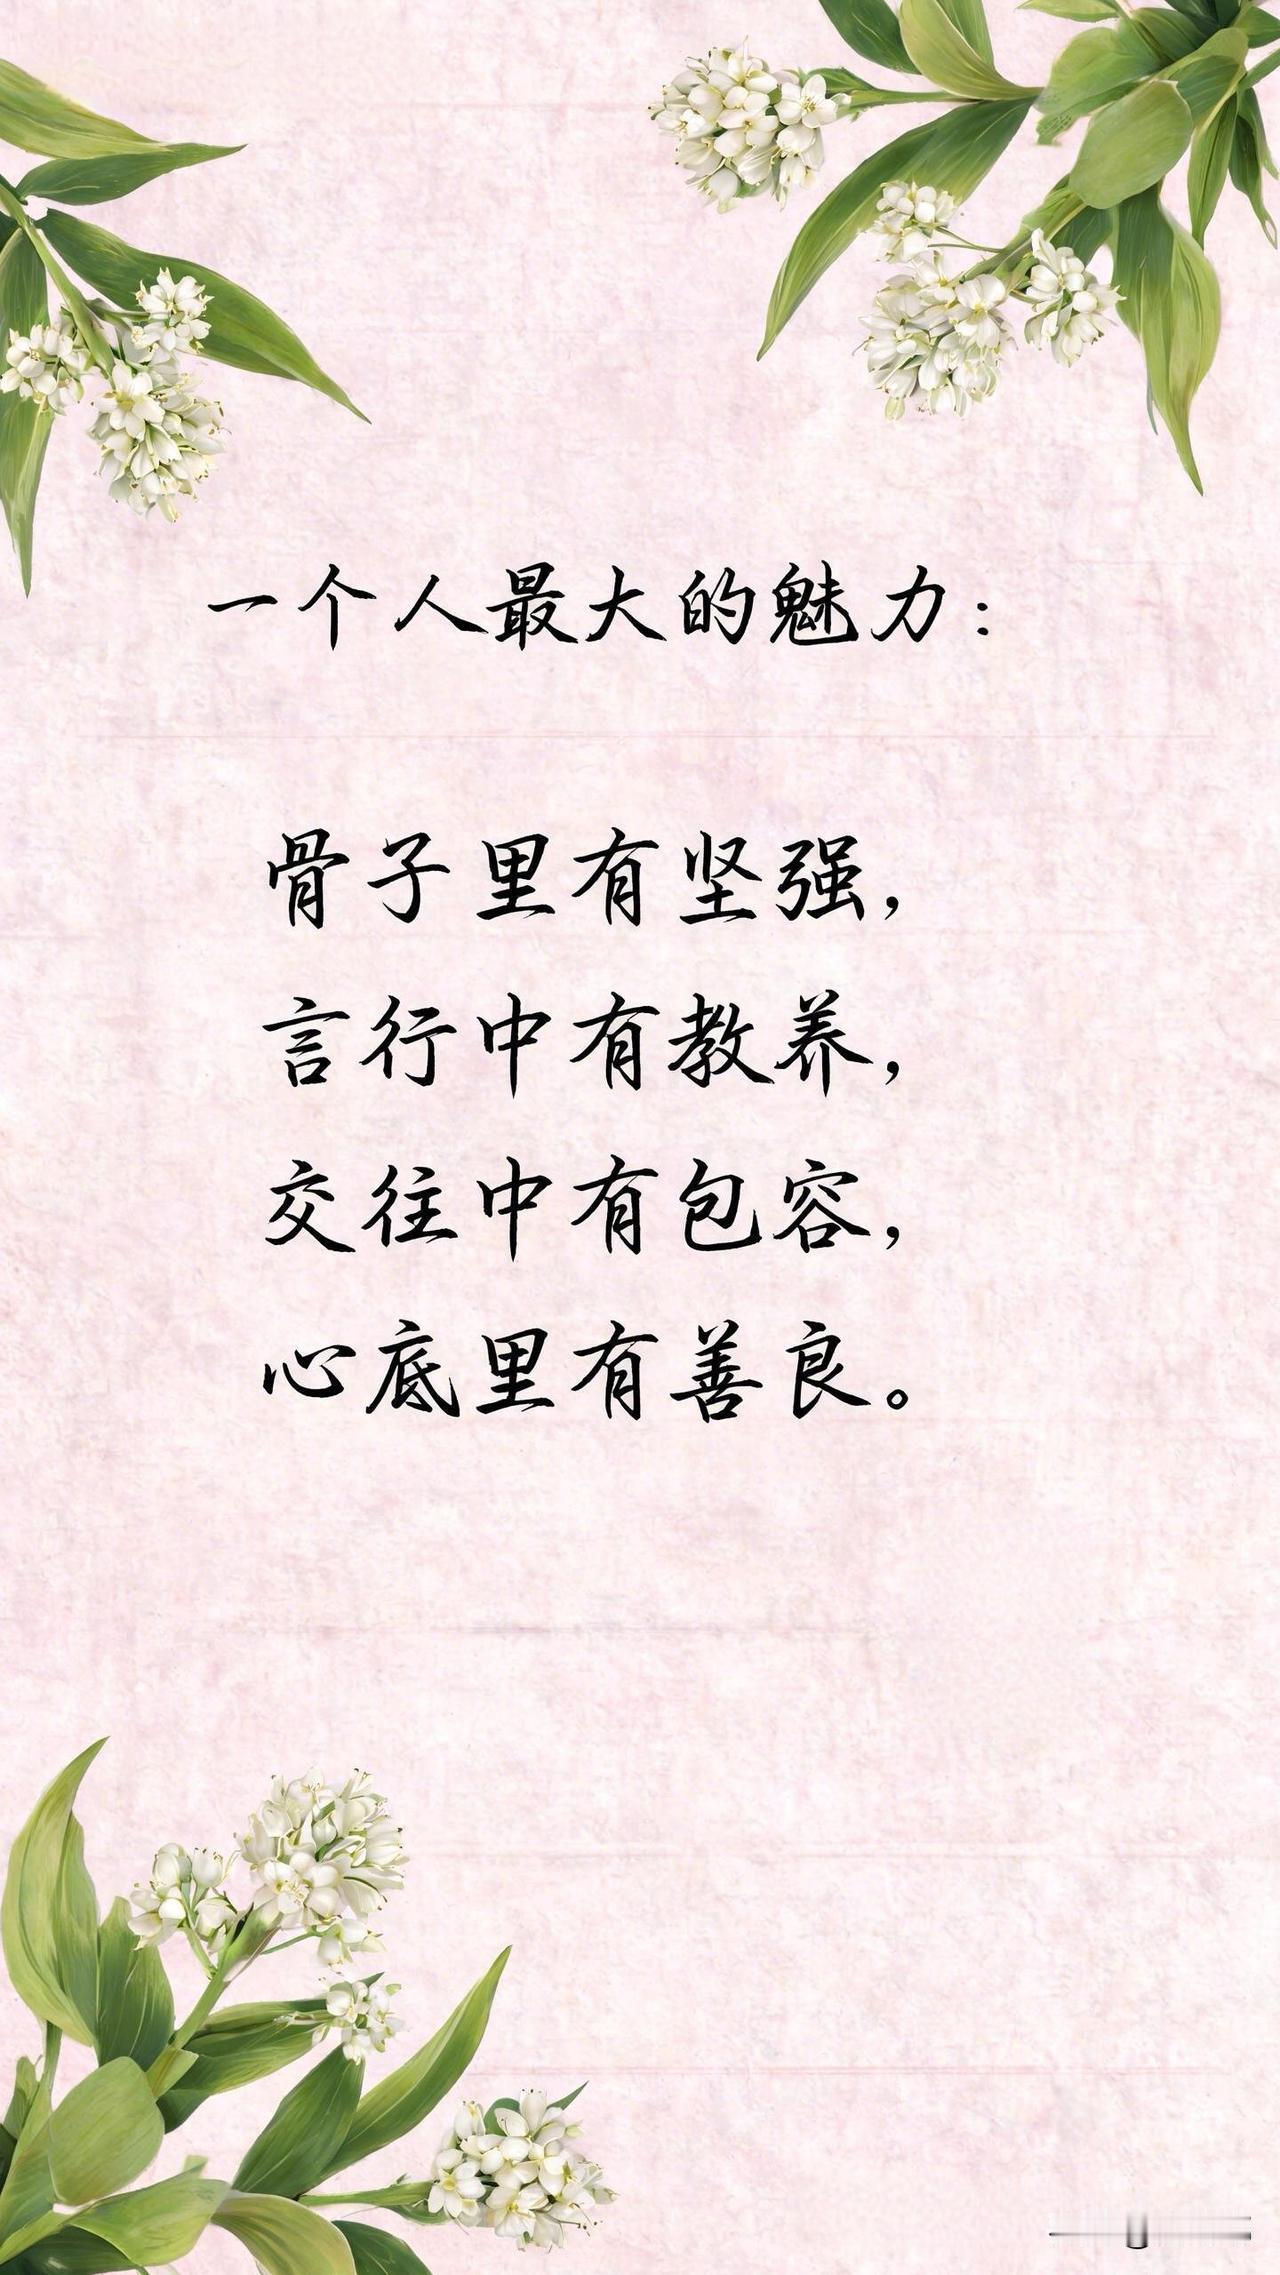 一个人最大的魅力：
骨子里有坚强，
言行中有教养，
交往中有包容，
心底里有善良。